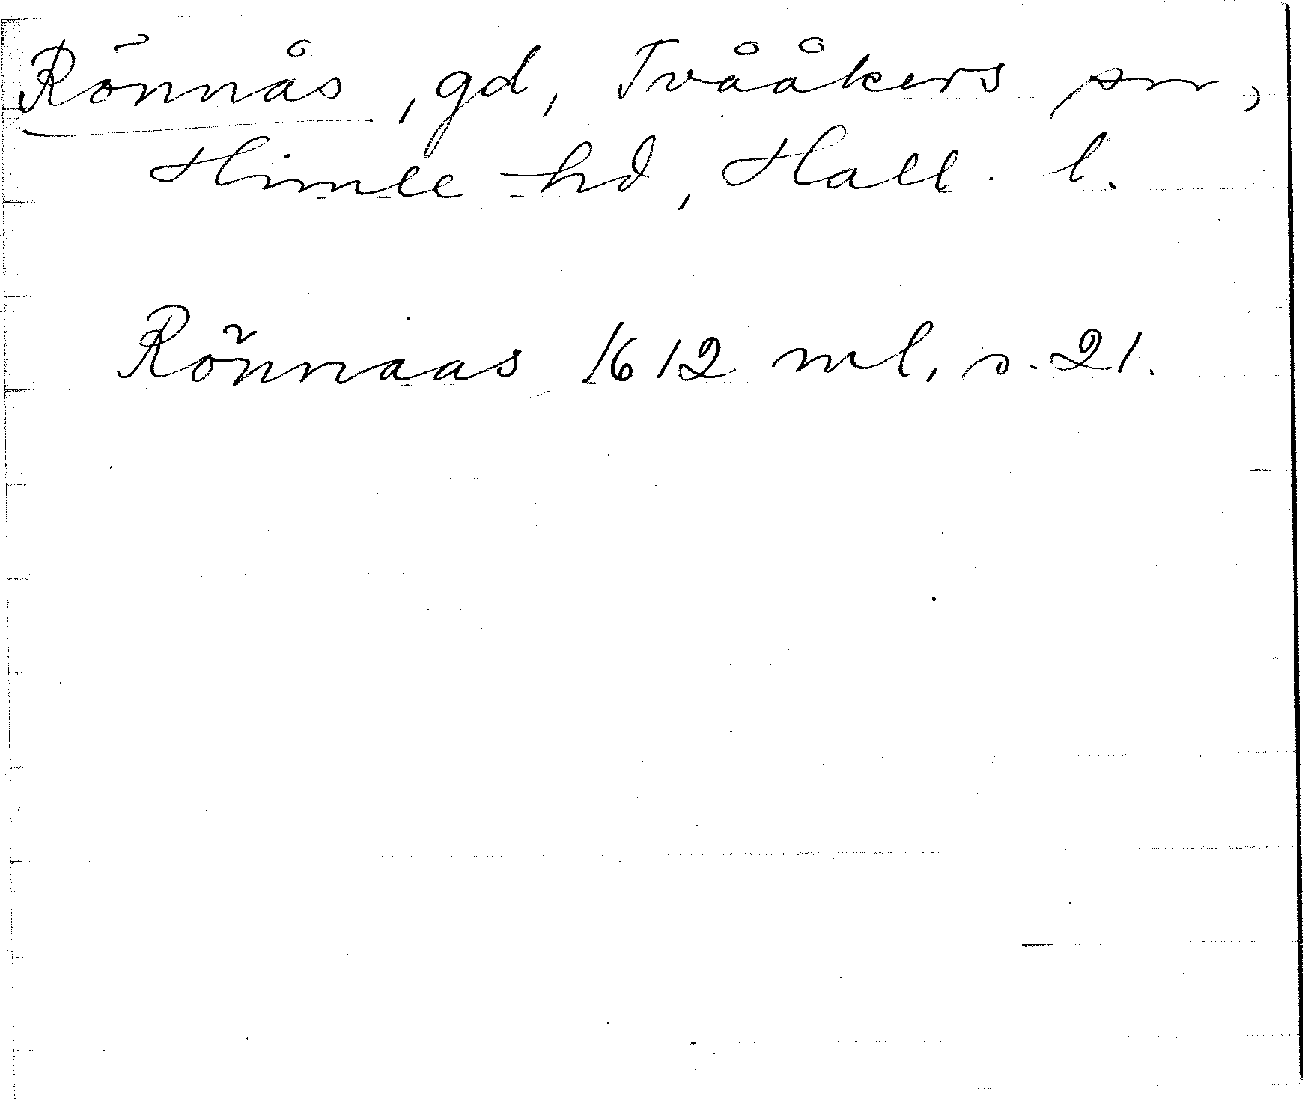 Rönnås, gd, Tvååkers sn,
Himle hd, Hall. l.
Rönnaas 1612 ml, s. 21.